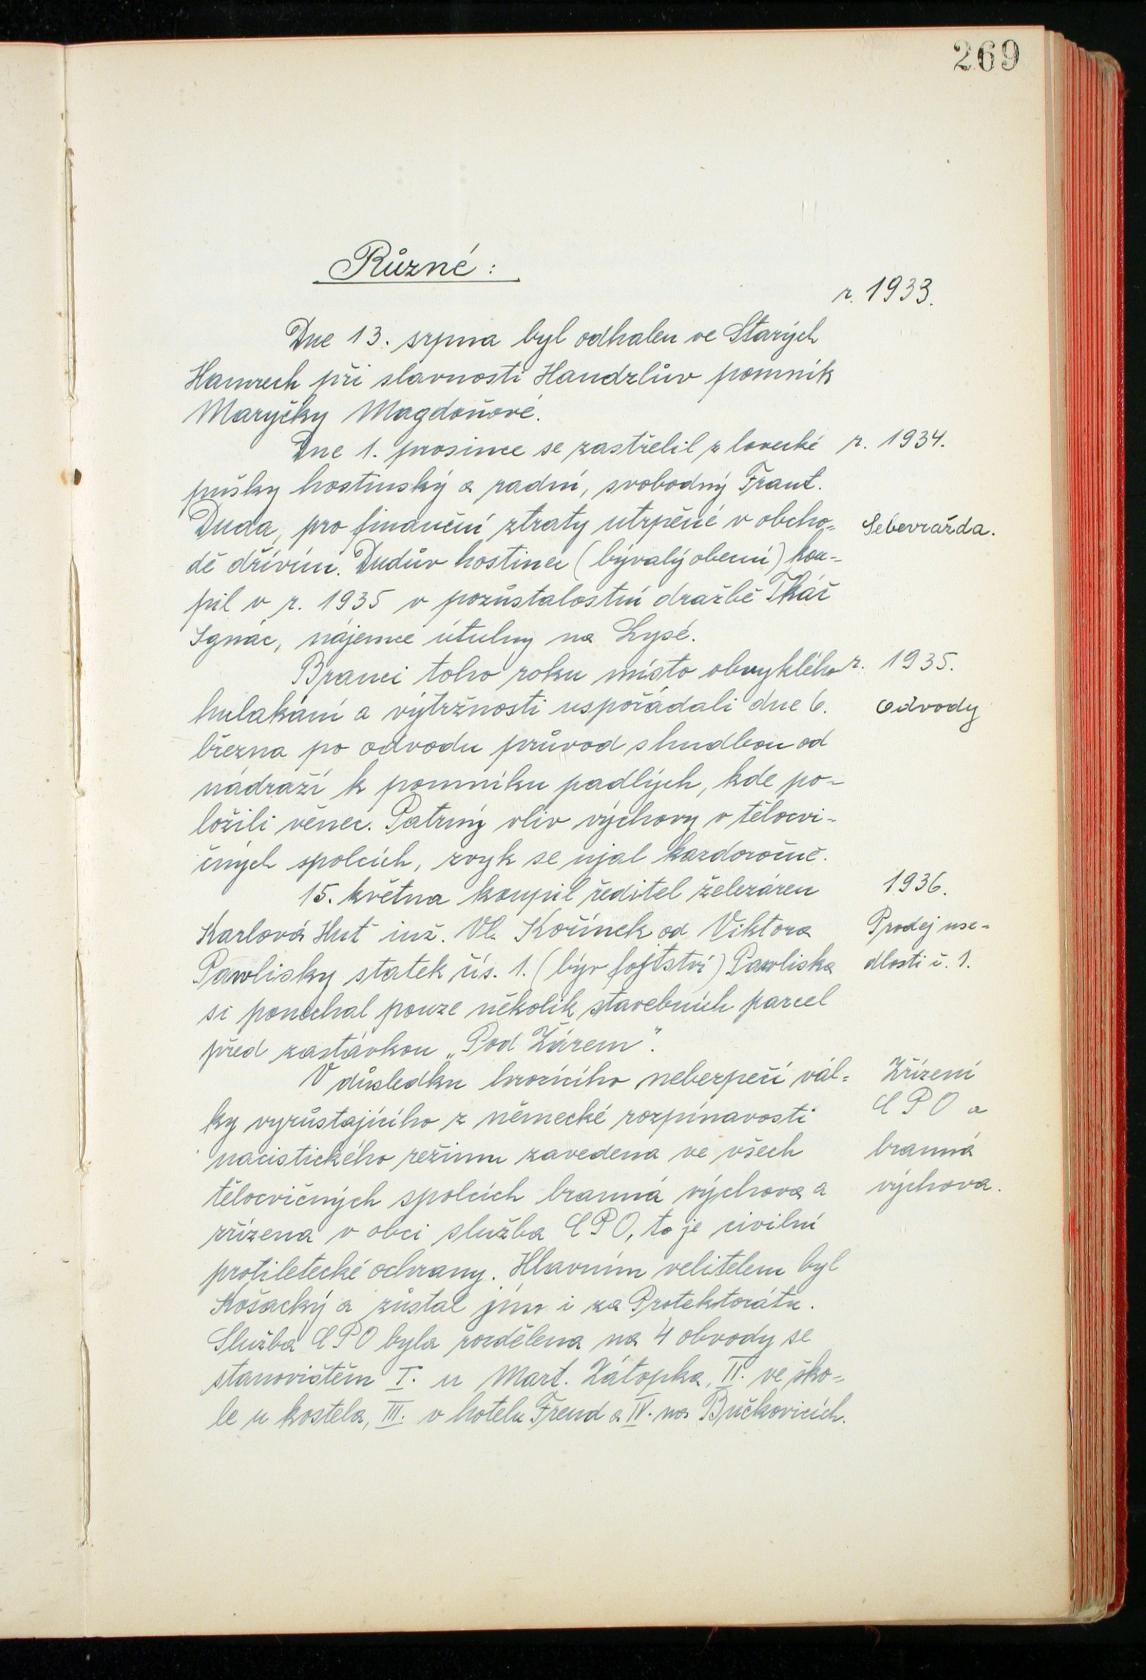 269
Různé :
r. 1933.
Dne 13. srpna byl odhalen ve Starých
Hamrech při slavnosti Handzlův pomník
Maryčky Magdoňové.
Dne 1. prosince se zastřelil z lovecké
r. 1934.
pušky hostinský a radní, svobodný Frant.
Duda, pro finanční ztraty utrpěné v obcho-
Sebevražda.
dě dřívím. Dudův hostinec (bývalý obecní) kou-
pil v r. 1935 v pozůstalostní dražbě Tkáč
Ignác, nájemce útulny na Lysé.
Branci toho roku místo obvyklého
r. 1935.
hulákání a výtržnosti uspořádali dne 6.
Odvody
března po odvodu průvod s hudbou od
nádraží k pomníku padlých, kde po-
ložili věnec. Patrný vliv výchovy v tělocvi-
čných spolcích, zvyk se ujal každoročně.
15. května koupil ředitel železáren
1936.
Karlová Huť inž. Vl. Kořínek od Viktora
Prodej use-
Pawlisky statek čís. 1. (býv fojtství) Pawliska
dlosti č. 1.
si ponechal pouze několik stavebních parcel
před zastávkou „Pod Žárem".
V důsledku hrozícího nebezpečí vál-
Zřízení
ky vyrůstajícího z německé rozpínavosti
CPO a
nacistického režimu zavedena ve všech
branná
tělocvičných spolcích branná výchova a
výchova.
zřízena v obci služba CPO, to je civilní
protiletecké ochrany. Hlavním velitelem byl
Košacký a zůstal jím i za Protektorátu.
Služba CPO byla rozdělena na 4 obvody se
stanovištěm I. u Mart. Zátopka, II. ve ško-
le u kostela, III. v hotelu Freud a IV. na Bučkovicích.